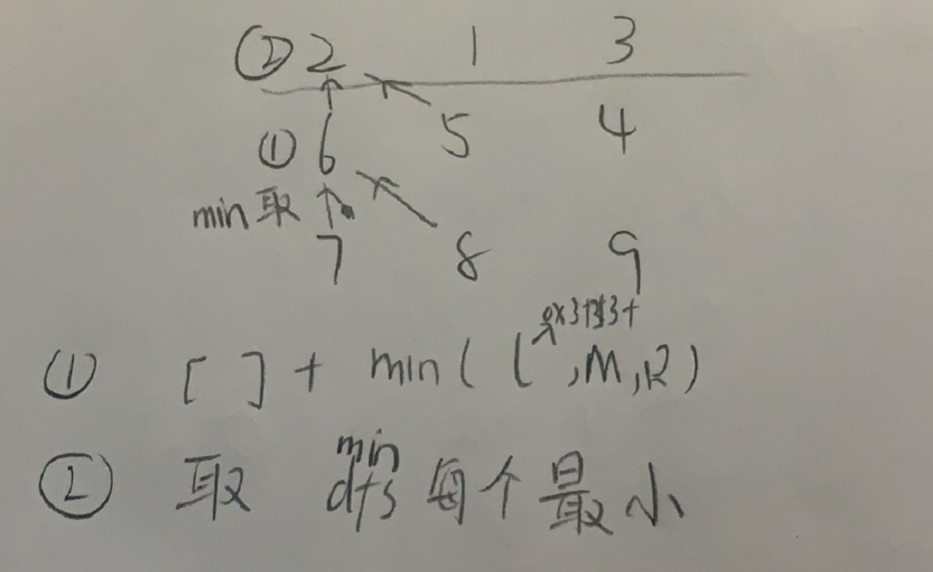 ② 2 1 3
① 6 5 4
min 取
7 8 9
0x3f3f3f
① [ ] + min( L ,M,R)
min
② 取 dfs 每个最小